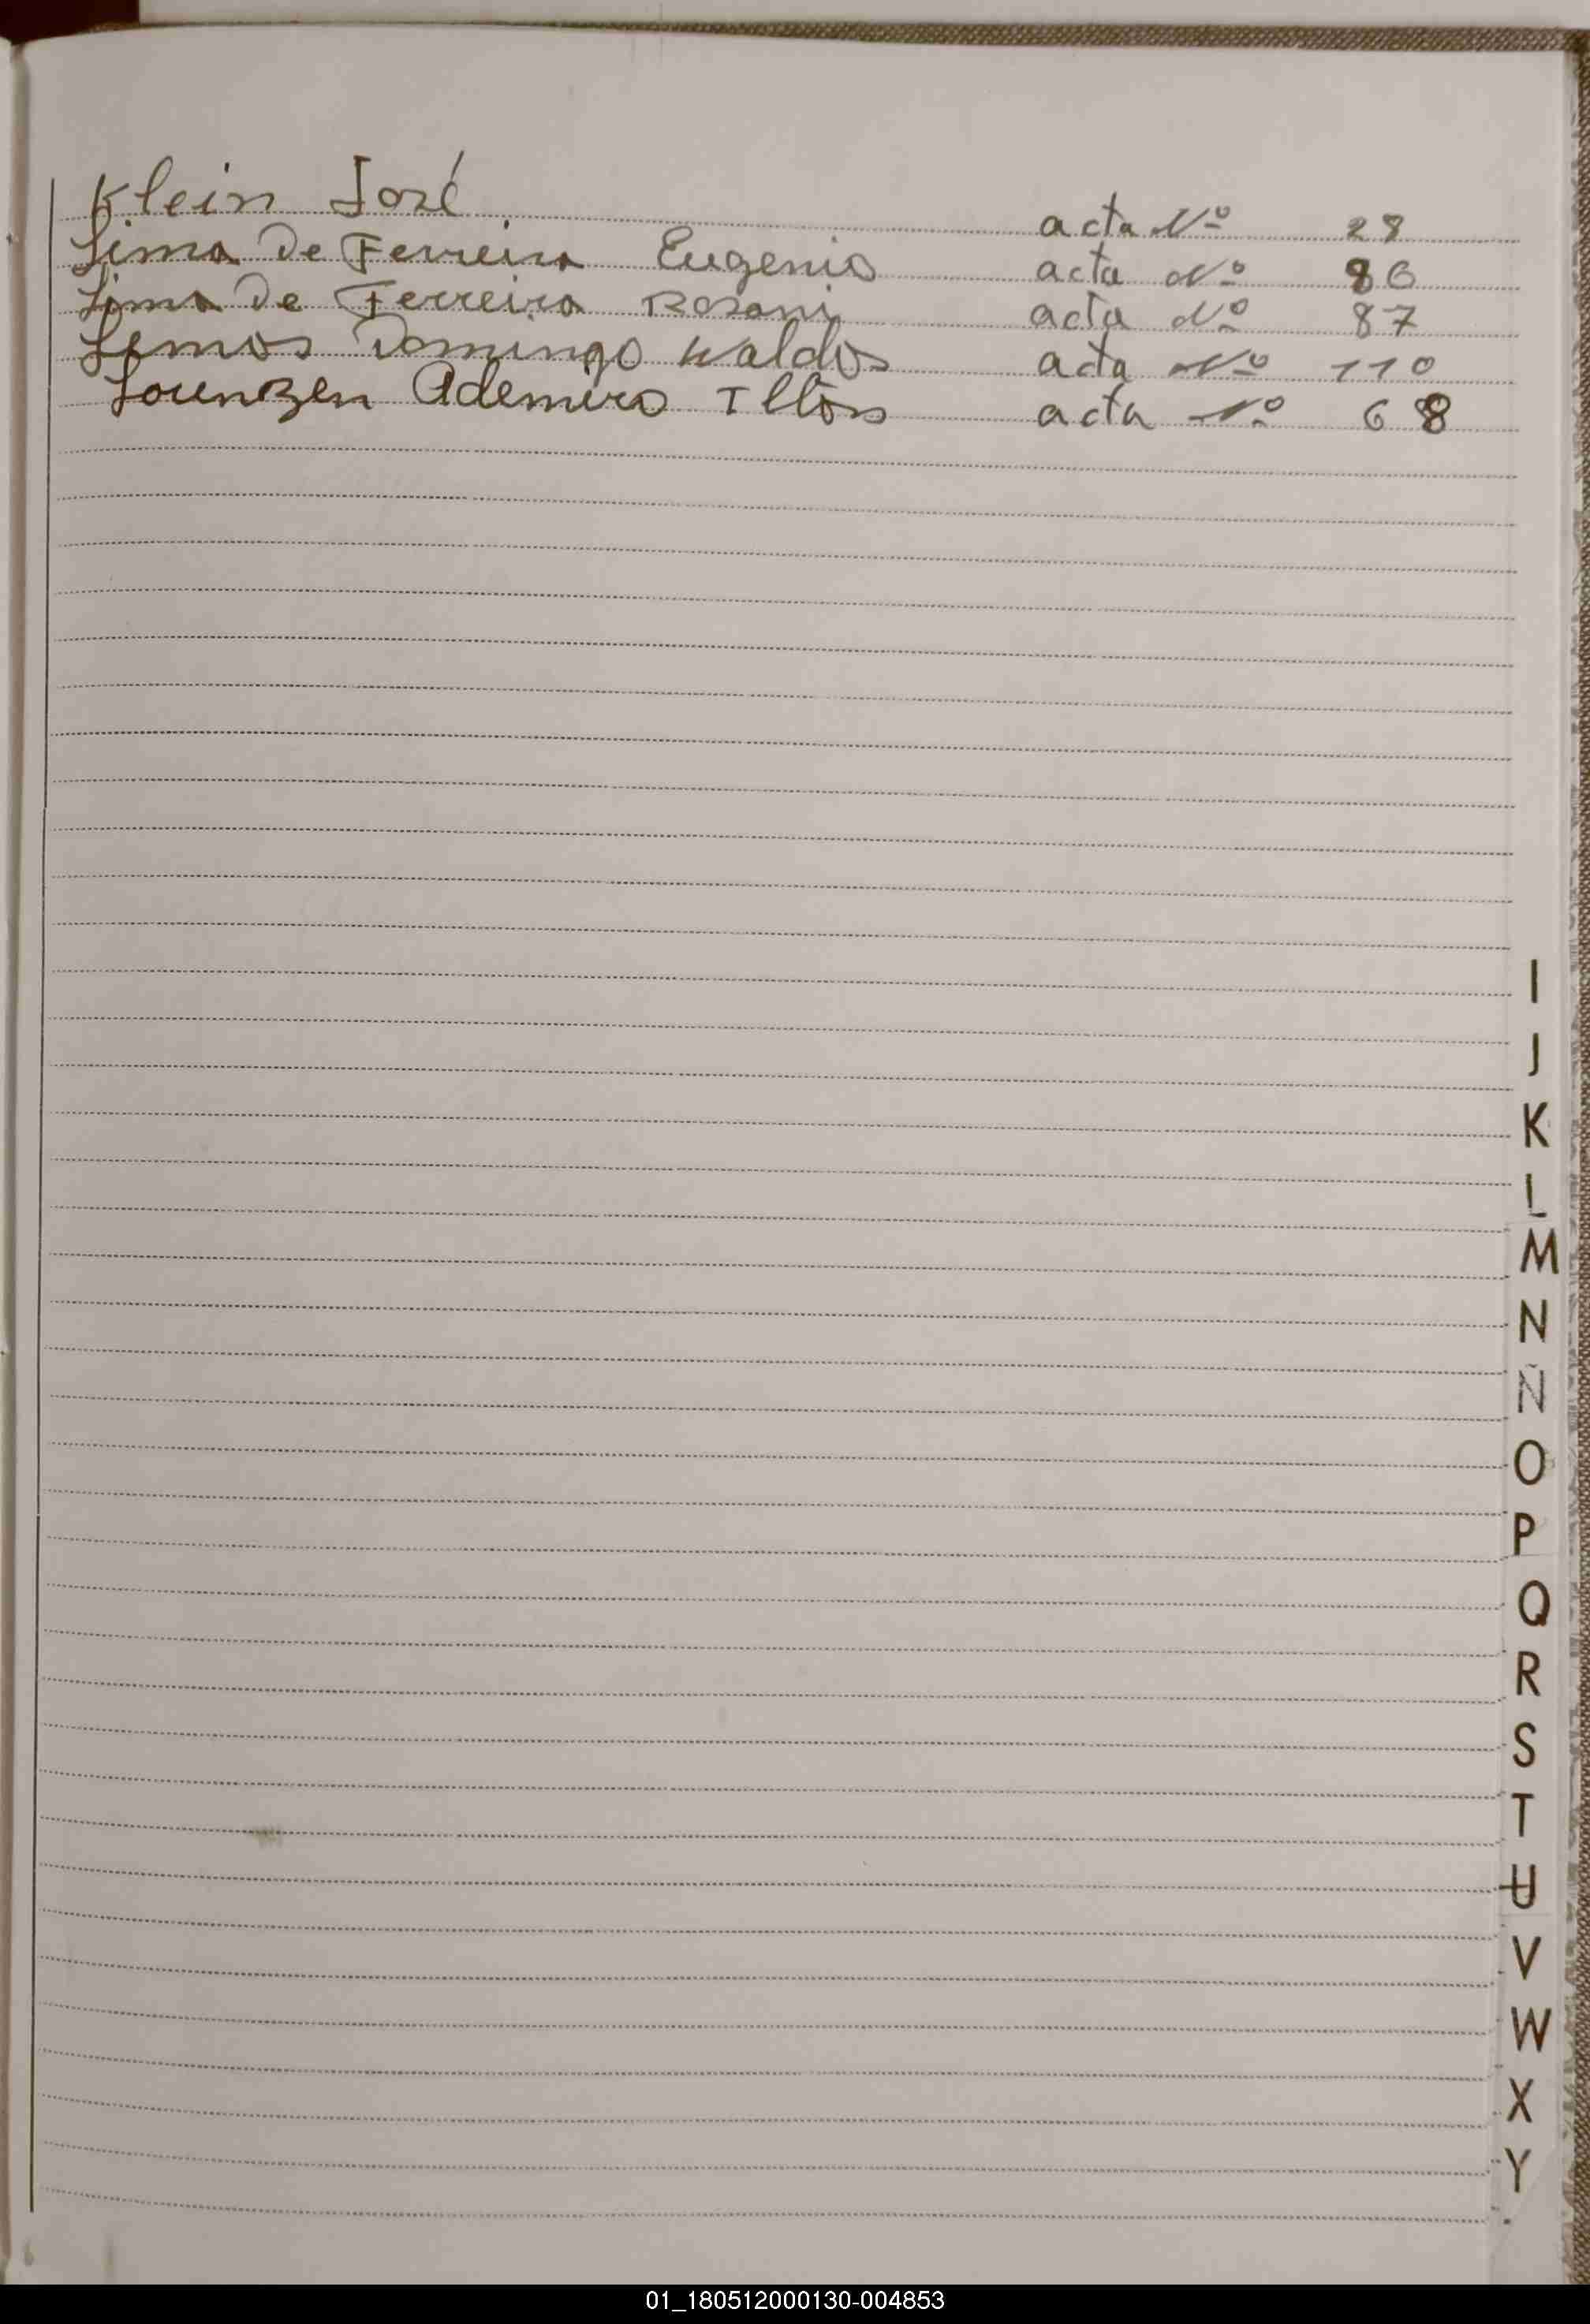 Klein José acta Nº 28
Lima De Ferreira Eugenio acta Nº 86
Lima De Ferreira Rosani acta Nº 87
Lemos Domingo Waldos acta Nº 110
Lorenzen Ademiro Ilton acta Nº 68
I
J
K
L
M
N
Ñ
O
P
Q
R
S
T
U
V
W
X
Y
01_180512000130-004853